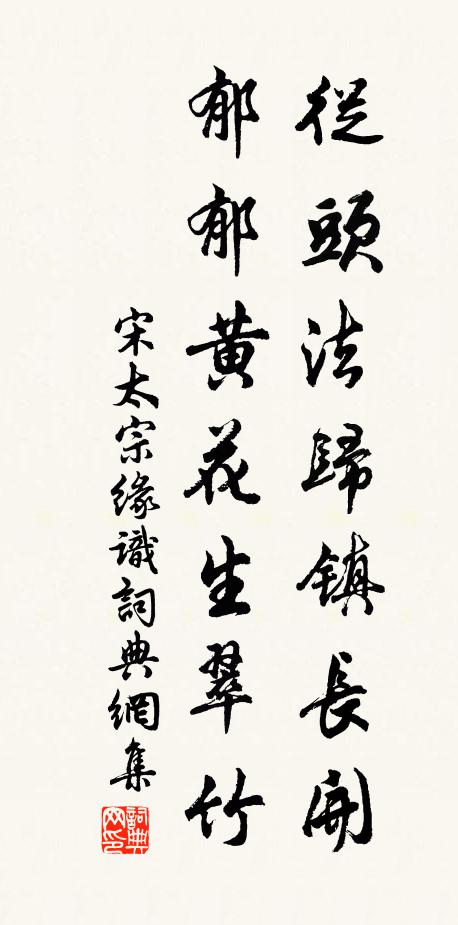 從頭法歸鎮長開
郁郁黃花生翠竹
宋太宗緣識詞典網集
詞典网印